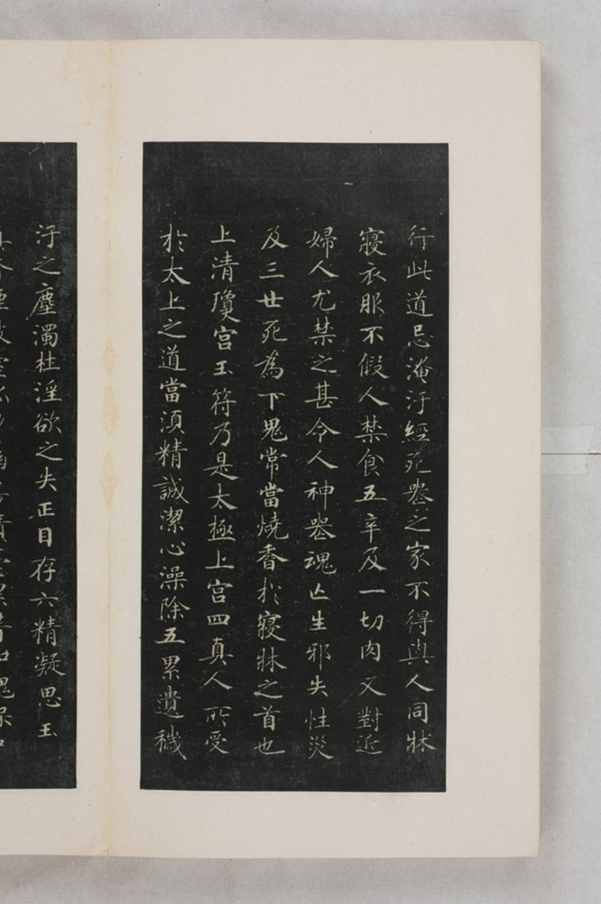 行此道忌淹汙經死喪之家不得與人同牀
寢衣服不假人禁食五辛及一切肉又對近
婦人尤禁之甚令人神喪魂亡生邪失性災
及三世死為下鬼常當燒香於寢牀之首也
上清瓊宮玉符乃是太極上宮四真人所受
於太上之道當須精誠潔心澡除五累遺穢
汙之塵濁杜淫欲之失正目存六精凝思玉